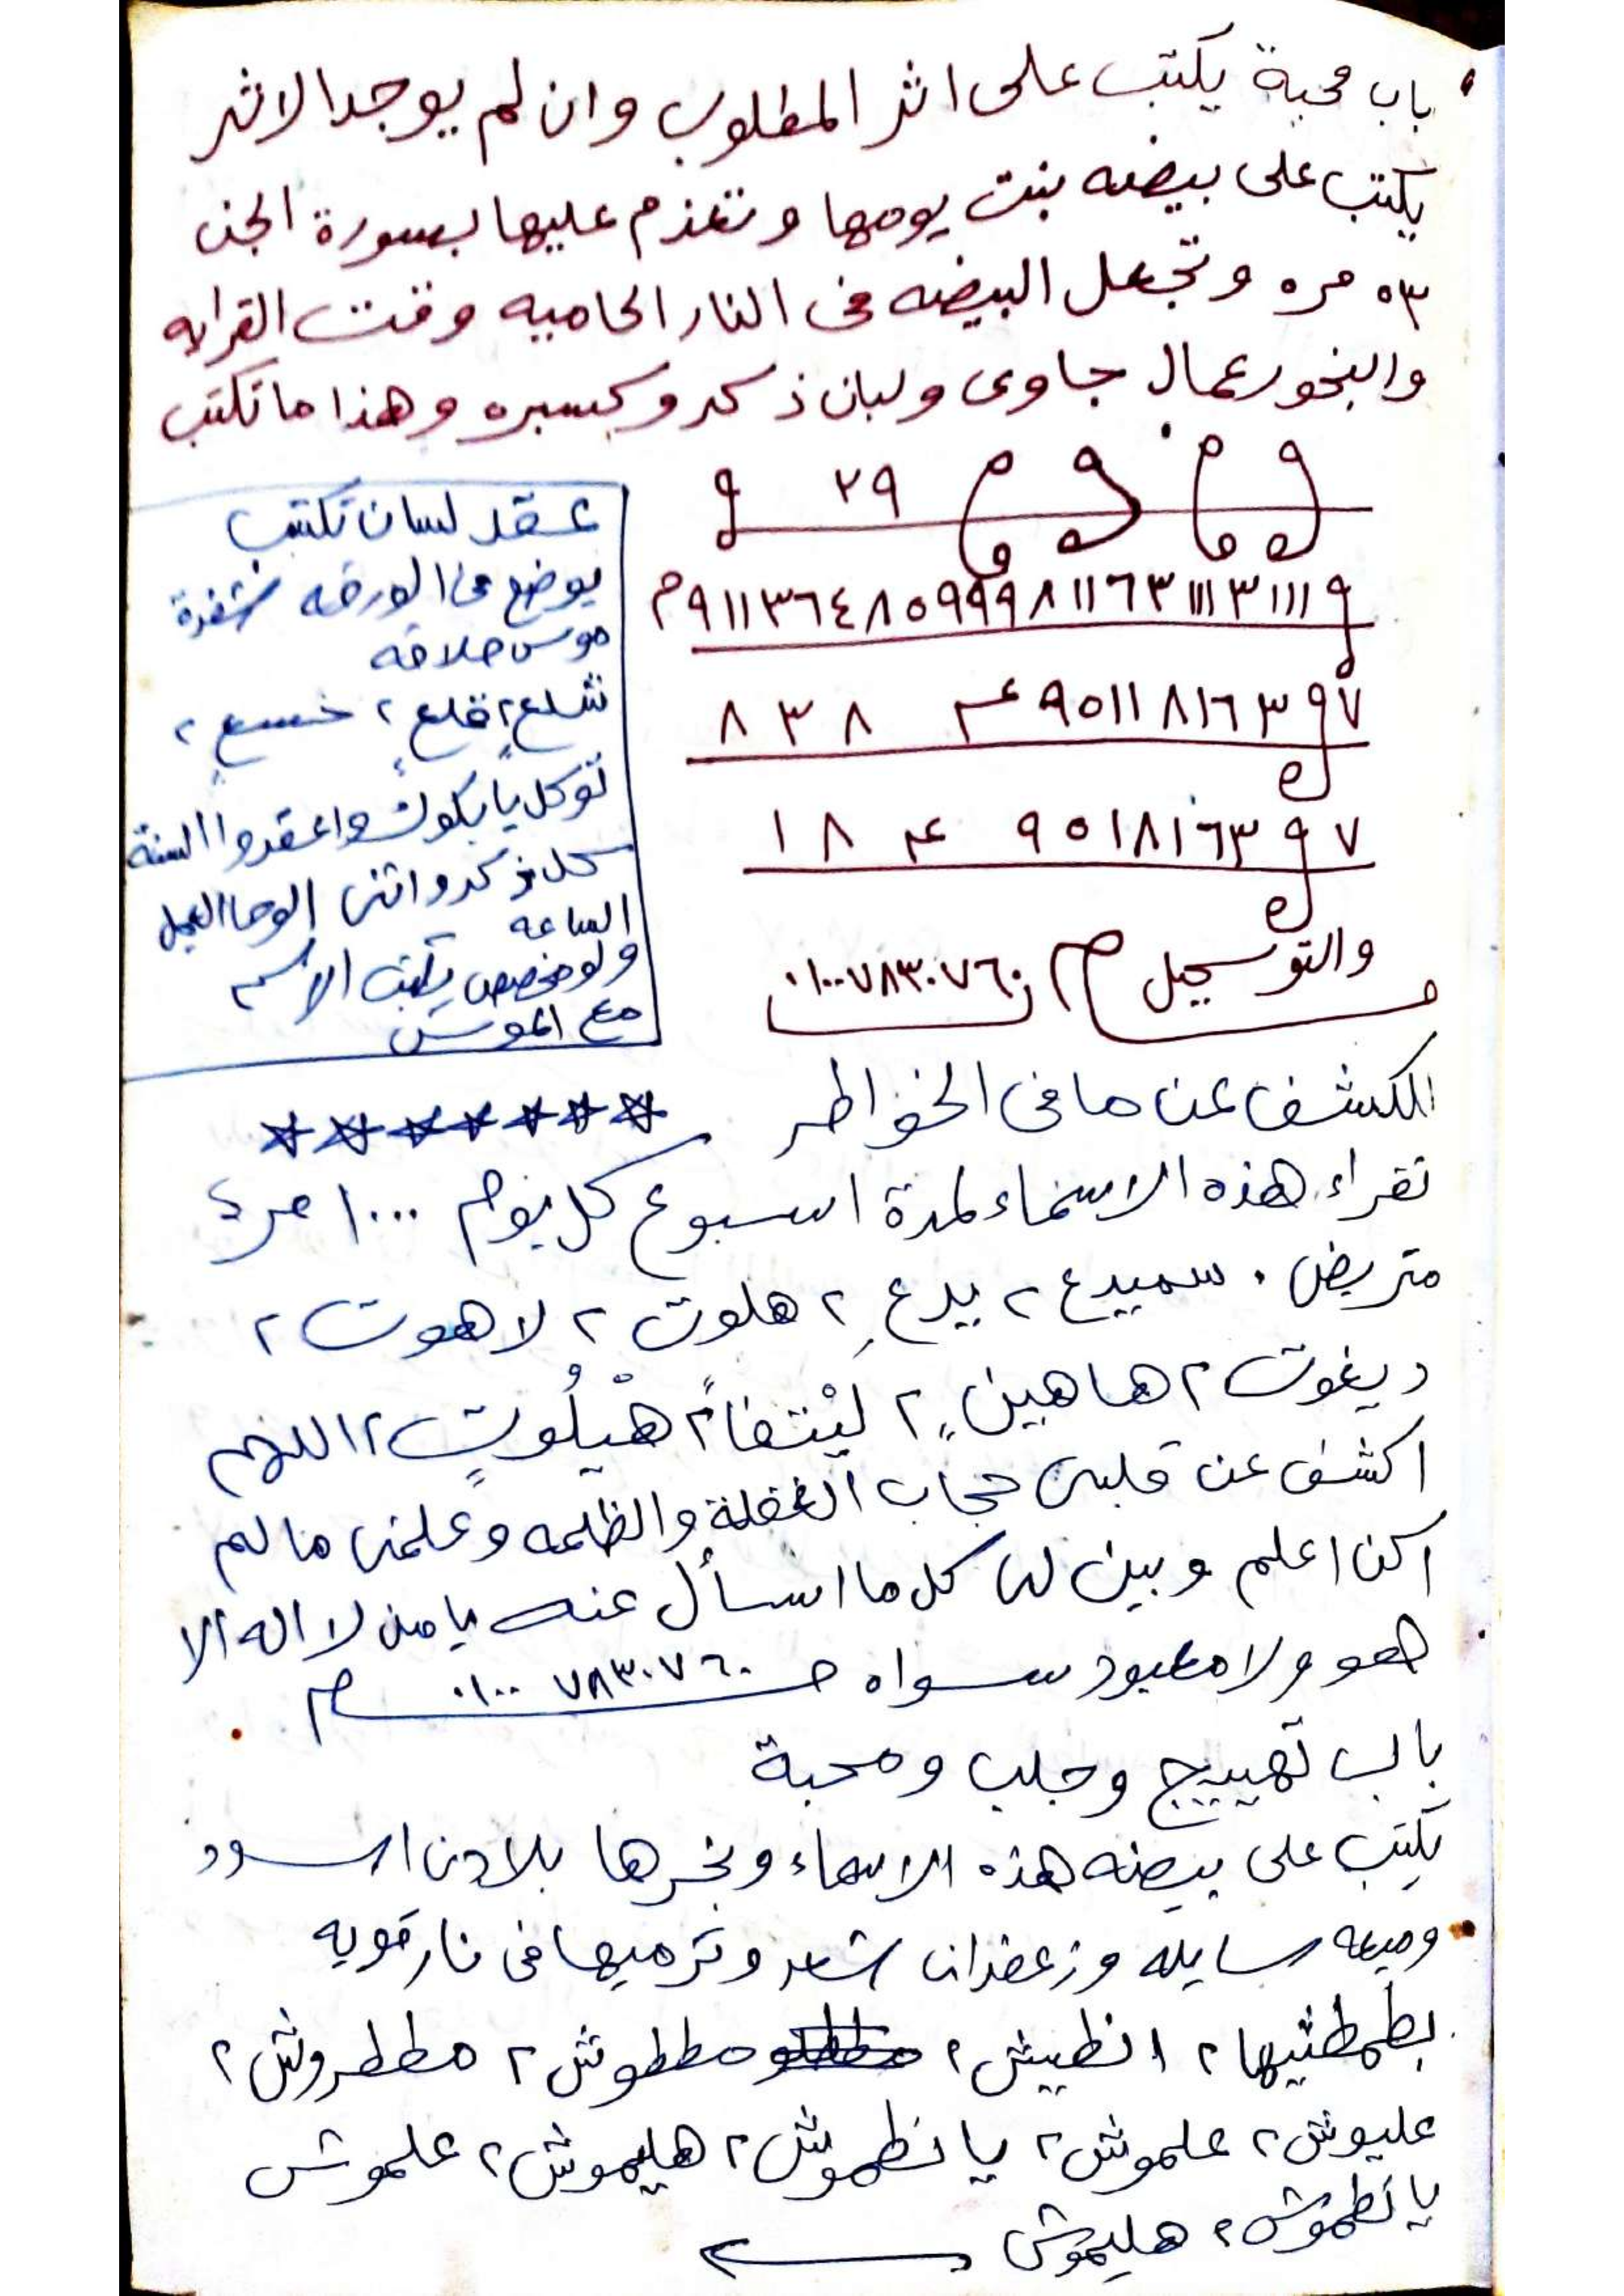 باب محبة يكتب على اثر المطلوب وان لم يوجد الاثر
يكتب على بيضه بنت يومها وتعزم عليها بسورة الجن
٥٣ مره وتجعل البيضه فى النار الحاميه وقت القراءه
والبخور عمال جاوى ولبان ذكر وكسبره وهذا ما تكتب
٢٩
٩١١٣٦٤٨٥٩٩٩٨١١٦٣١١١٣١١١٩
٧٩٣٦١٨١١٥٩ ٨٣٨
٧٩٣٦١٨١٥٩ ١٨
والتوكيل
٠١٠٠٧٨٣٠٧٦٠
عقد لسان تكتب
يوضع فى الورقه شفرة
موس حلاقه
شلع ٢ قلع ٢ خسع ٢
توكل يا بكوش واعقدوا السنة
كل ذكر وانثى الوحا العجل
الساعه
ولو مخصص يكتب الاسم
مع الموس
الكشف عن ما فى الخواطر
تقراء هذه الاسماء لمدة اسبوع كل يوم ١٠٠٠ مرة
متريض . سميدع ٢ يدع ٢ هلوت ٢ لاهوت ٢
ديغوت ٢ هاهين ٢ ليْتفاً ٢ هيْلُوتٍ ٢ اللهم
اكشف عن قلبى حجاب الغفلة والظلمه وعلمنى مالم
اكن اعلم وبين لى كل ما اسأل عنه يا من لا اله الا
هو ولا معبود سواه ٠١٠٠٧٨٣٠٧٦٠
باب تهييج وجلب ومحبة
يكتب على بيضه هذه الاسماء وبخرها بلادن اسود
وميعه سايله وزعفران شعر وترميها فى نار قويه
بطمطثيها ٢ انطيش ٢ مططوش ٢ مططروش ٢
عليوش ٢ علموش ٢ يانطموش ٢ هليموش ٢ علموش
يانطموش ٢ هليموش